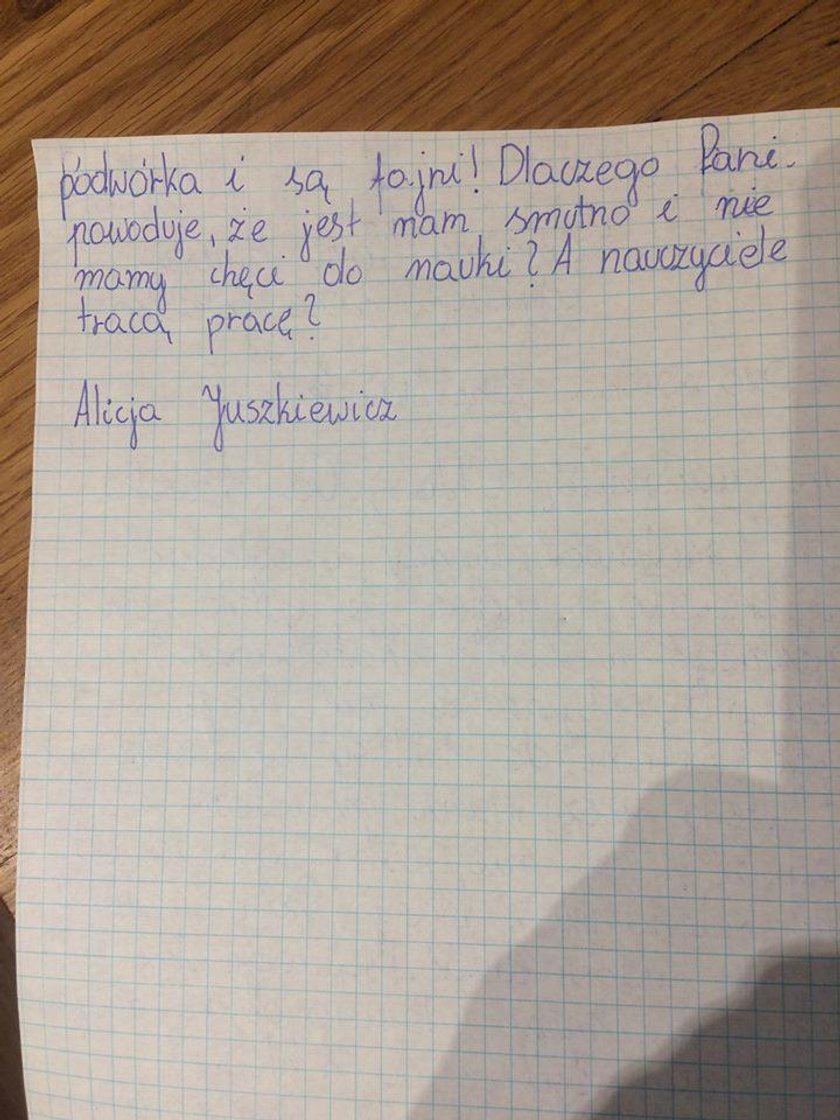 podwórka i są fajni! Dlaczego Pani
powoduje, że jest nam smutno i nie
mamy chęci do nauki? A nauczyciele
tracą pracę?
Alicja Juszkiewicz